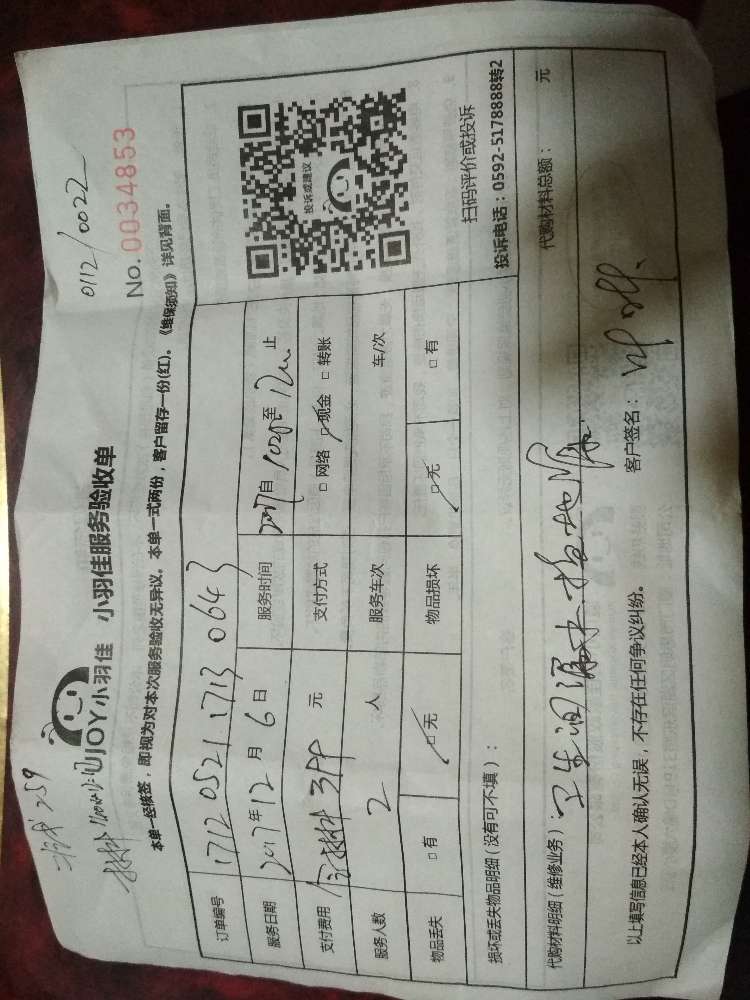 0112/0022
No.0034853
UJOY小羽佳 小羽佳服务验收单
本单一经核签，即视为对本次服务验收无异议。本单一式两份，客户留存一份(红)。《维保须知》详见背面。
订单编号 1712 0521 1713 0643
服务日期 2017年12月6日 服务时间 自 至 止
支付费用 元 支付方式 □网络 □现金 □转账
服务人数 2 人 服务车次 车/次
物品丢失 □有 □无 物品损坏 □无 □有
投诉或建议
扫码评价或投诉
投诉电话：0592-5178888转2
损坏或丢失物品明细（没有可不填）：
代购材料明细（维修业务）：卫生间漏水 代购材料总额： 元
以上填写信息已经本人确认无误，不存在任何争议纠纷。 客户签名：